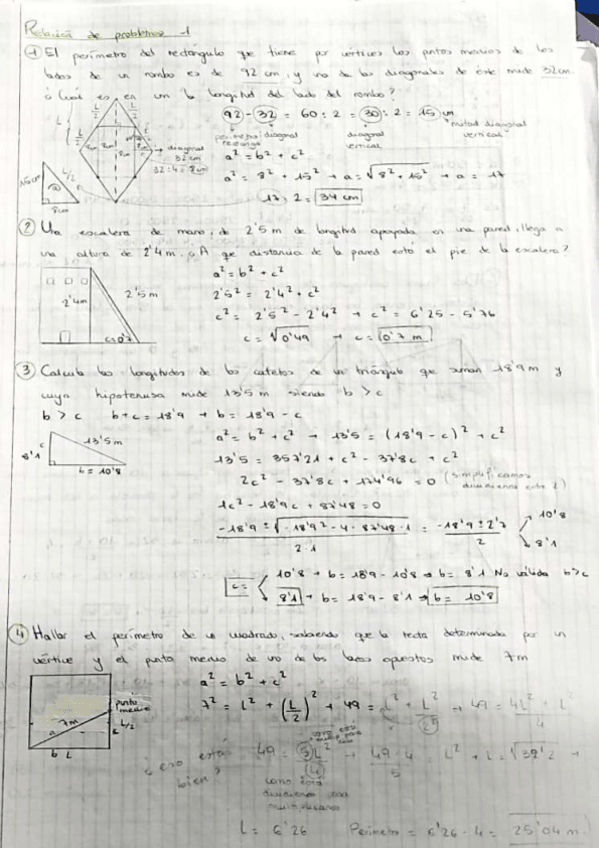 Relación de problemas -1
① El perímetro del rectángulo que tiene por vértices los puntos medios de los
lados de un rombo es de 92 cm, y una de las diagonales de éste mide 32 cm.
¿Cuál es en cm la longitud del lado del rombo?
92 - 32 = 60 : 2 = 30 : 2 = 15 cm
perímetro diagonal
diagonal vertical
mitad diagonal vertical
→ diagonal
32 cm
32 : 4 = 8 cm
L
L/2
L/2
8cm
8cm
15cm
L/2
8cm
a² = b² + c²
a² = 8² + 15² → a = √8² + 15² → a = 17
17 · 2 = 34 cm
② Una escalera de mano, de 2'5 m de longitud apoyada en una pared, llega a
una altura de 2'4 m. ¿A que distancia de la pared está el pie de la escalera?
2'4m
2'5 m
c=0'7
a² = b² + c²
2'5² = 2'4² + c²
c² = 2'5² - 2'4² → c² = 6'25 - 5'76
c = √0'49 → c = 0'7 m
③ Calcula las longitudes de los catetos de un triángulo que suman 18'9 m y
cuya hipotenusa mide 13'5 m siendo b > c
b > c b + c = 18'9 → b = 18'9 - c
c
8'1
13'5 m
b = 10'8
a² = b² + c² → 13'5 = (18'9 - c)² + c²
13'5 = 357'21 + c² - 37'8c + c²
2c² - 37'8c + 174'96 = 0 (simplificamos
dividiendo entre 2)
1c² - 18'9c + 87'48 = 0
-18'9 ± √-18'9² - 4 · 87'48 · 1 / 2·1 = -18'9 ± 2'7 / 2
10'8
8'1
c = 10'8 → b = 18'9 - 10'8 → b = 8'1 No válida b>c
8'1 → b = 18'9 - 8'1 → b = 10'8
④ Hallar el perímetro de un cuadrado, sabiendo que la recta determinada por un
vértice y el punto medio de uno de los lados opuestos mide 7m
punto
medio
7m
a
L/2
c
b L
a² = b² + c²
7² = L² + (L/2)² → 49 = L² + L² → 49 = 4L² + L² / 4
49 = 5L² / 4 → 49 · 4 / 5 = L² → L = √39'2 →
¿eso está
bien?
como está
dividiendo pasa
multiplicando
L = 6'26 Perímetro = 6'26 · 4 = 25'04 m.